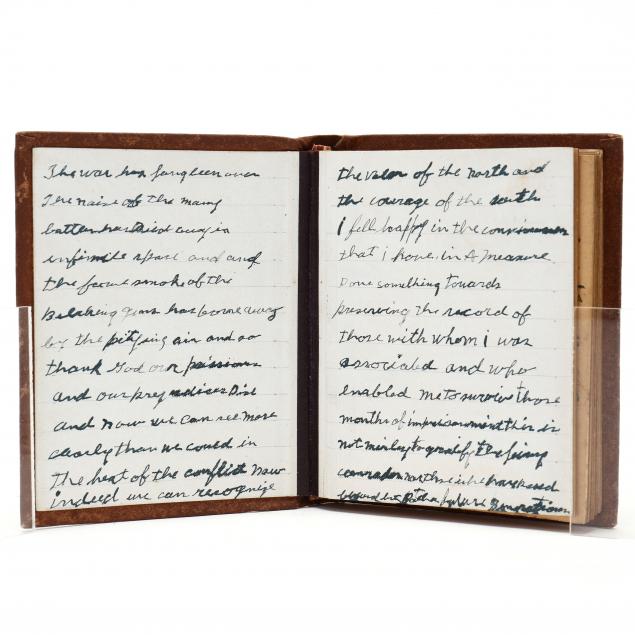 The war has long been over
The noise of the many
battles has died away in
infinite space and and
the fierce smoke of the
Belching guns has borne away
by the pitying air and so
thank God our passions
and our prejudices Died
and now we can see more
clearly than we could in
the heat of the conflict Now
indeed we can recognize
the valor of the north and
the courage of the south
I fell happy in the
that i have in A measure
Done something towards
preserving the record of
those with whom i was
associated and who
enabled me to survive those
months of imprisonment this is
not merley to gratify the living